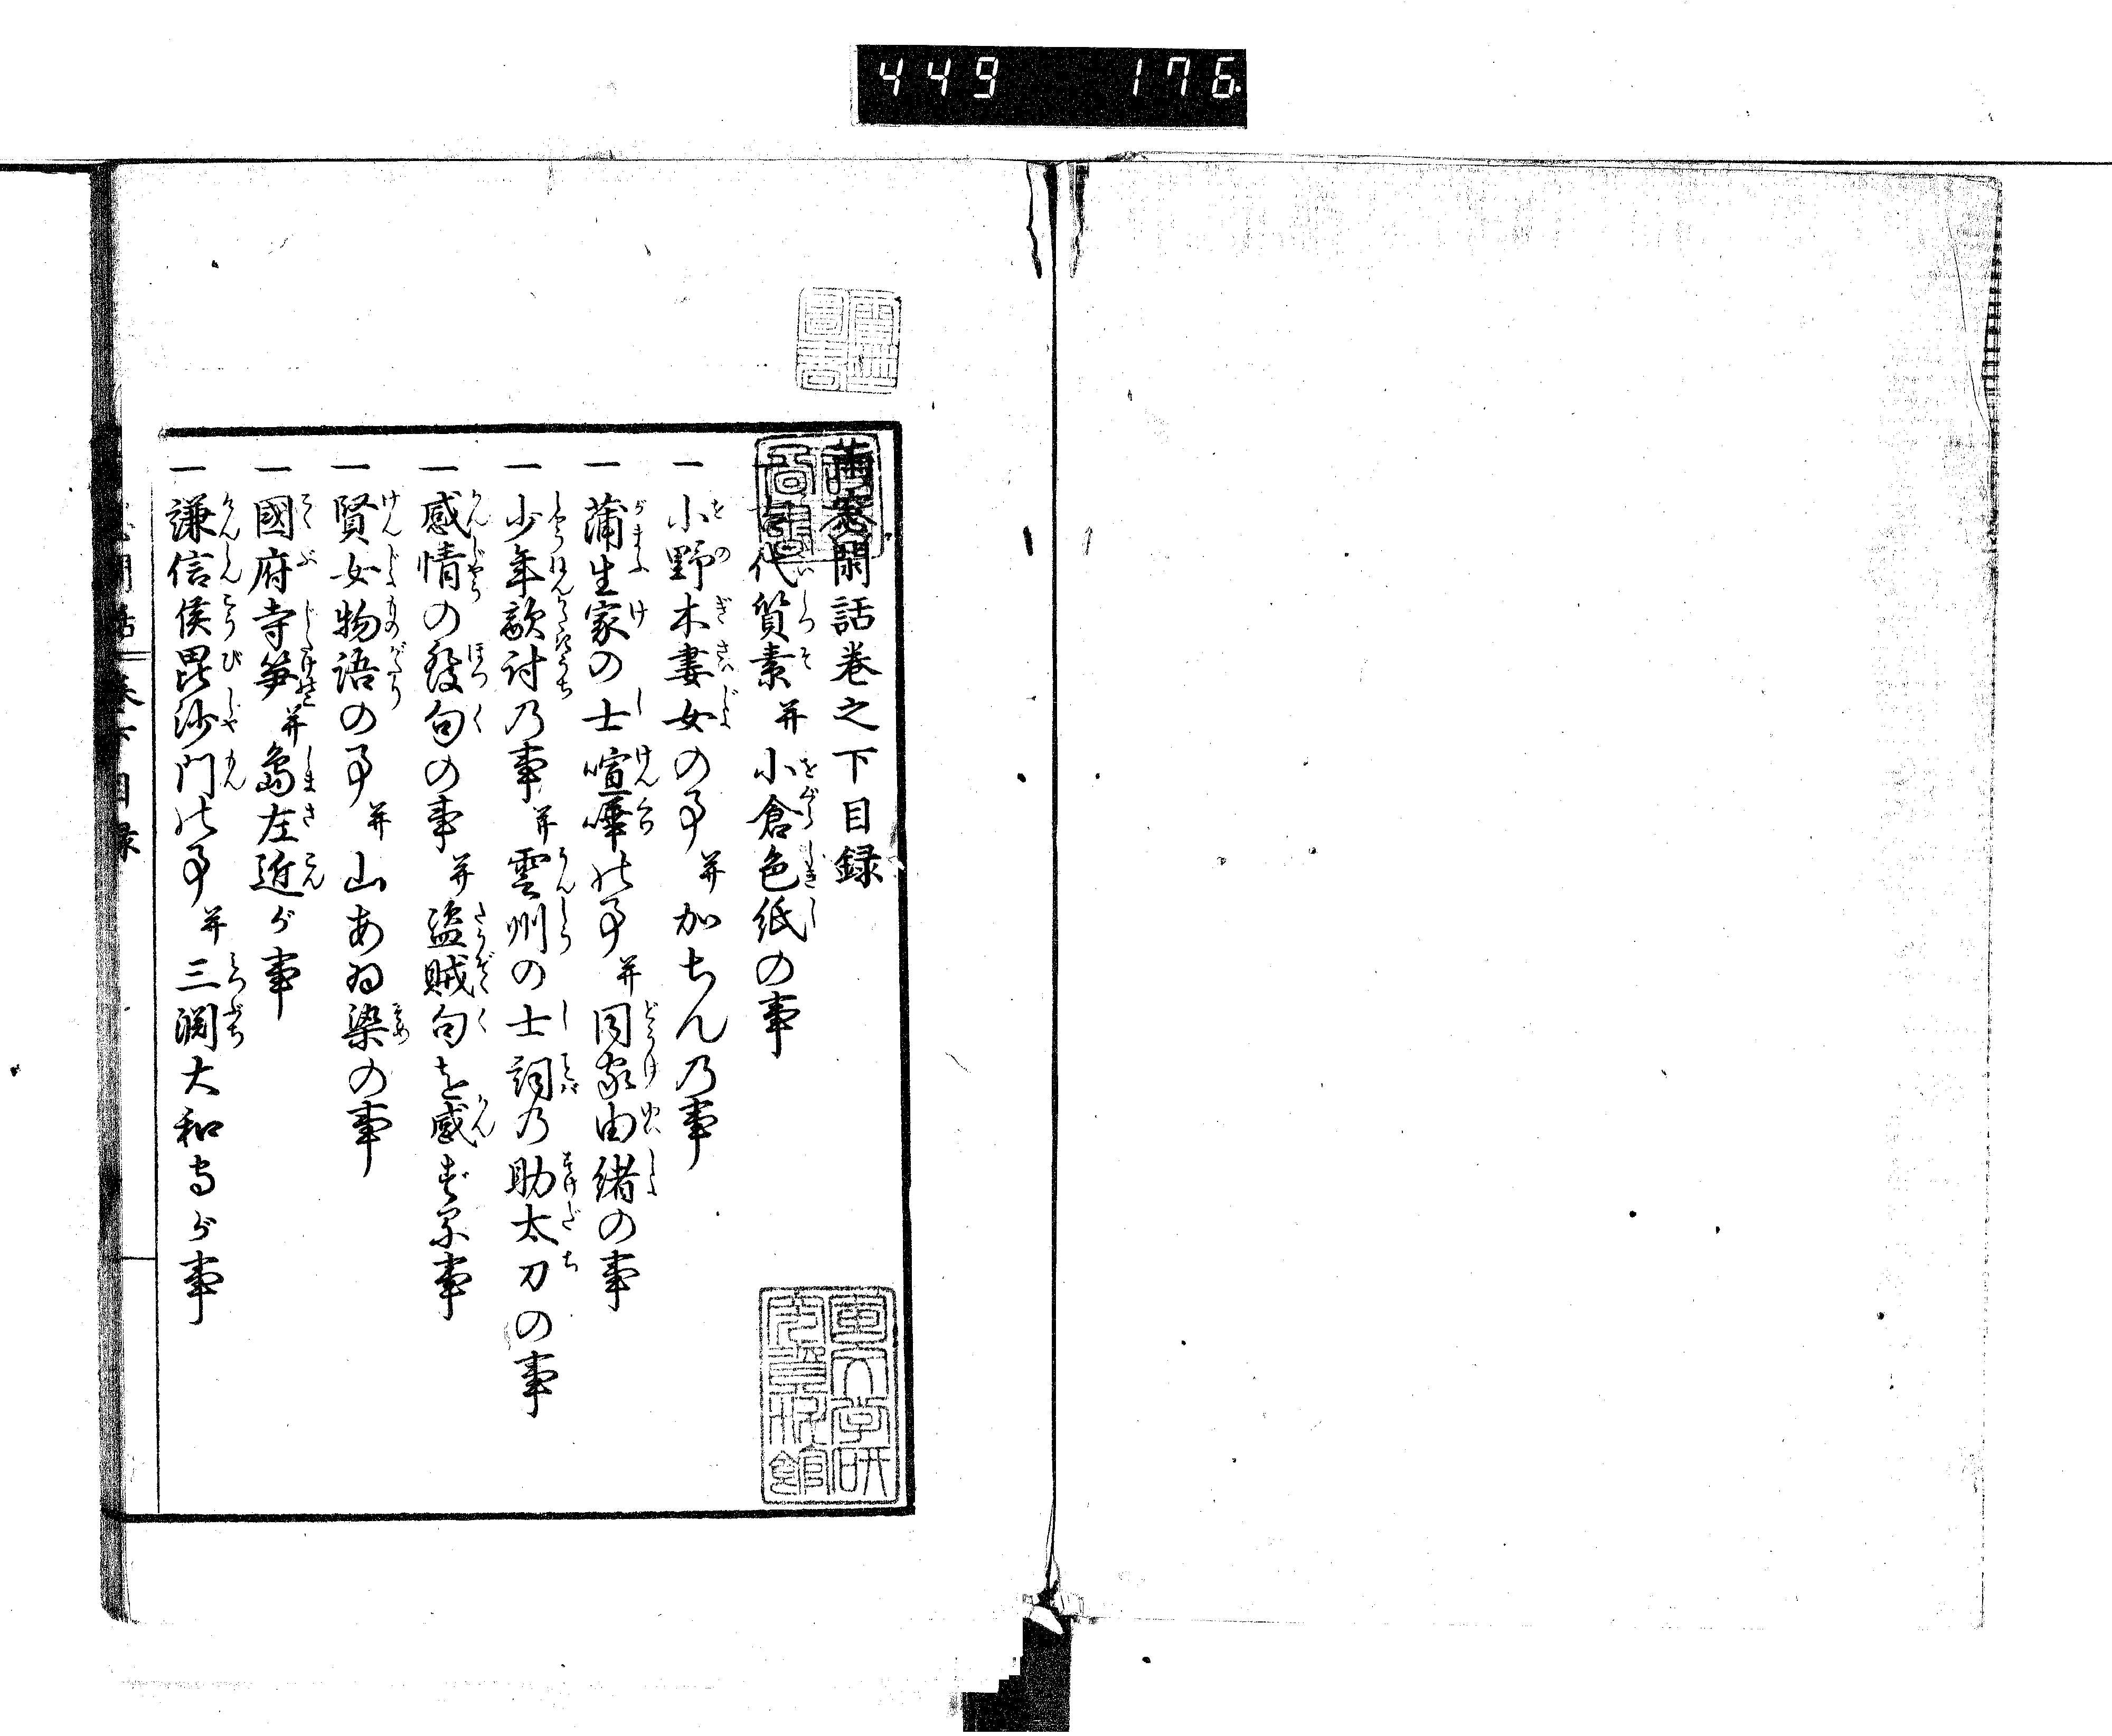 449 176
雨窓閑話巻之下目録
一古代質素并小倉色紙の事
一小野木妻女の事并加ちん乃事
一蒲生家の士喧嘩の事并同家由緒の事
一少年敵討乃事并雲州の士詞乃助太刀の事
一感情の発句の事并盗賊句を感ずる事
一賢女物語の事并山あゐ染の事
一國府寺笋并島左近が事
一謙信侯毘沙門の事并三淵大和守が事